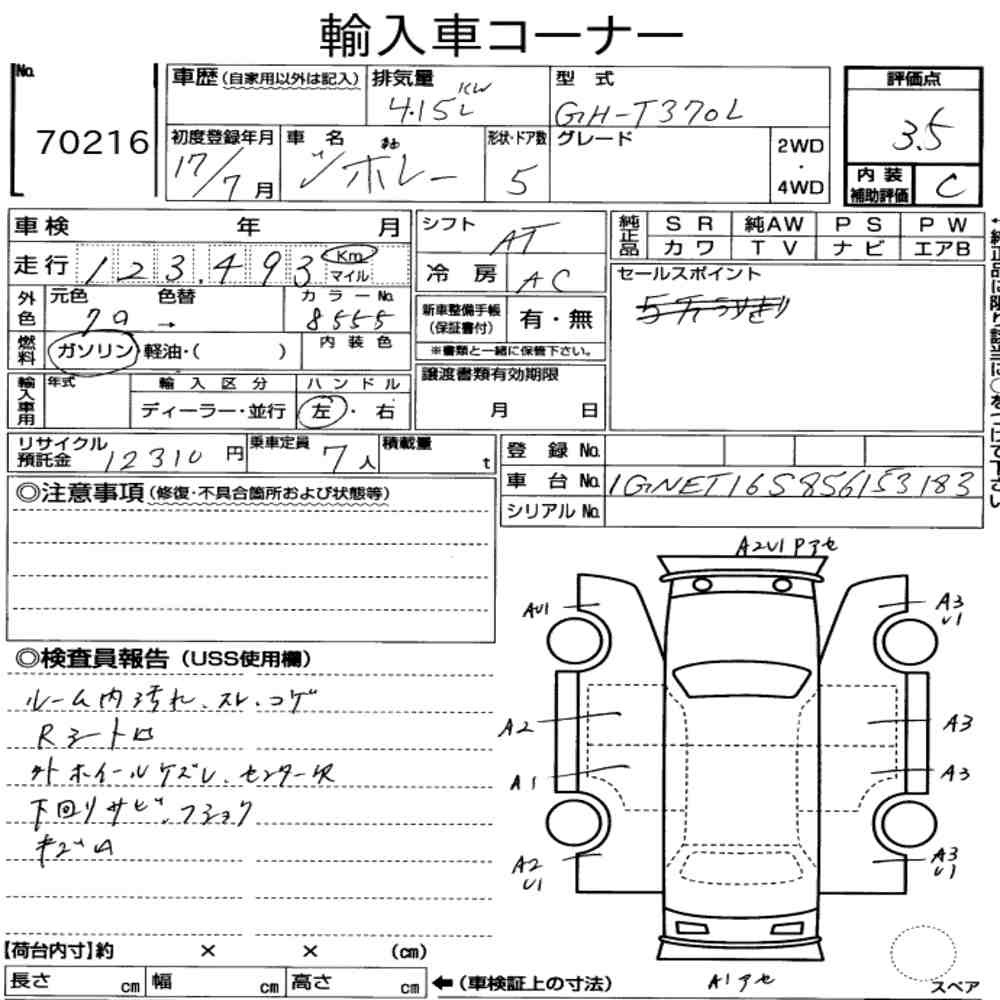 輸入車コーナー
No. 70216
車歴 (自家用以外は記入)
排気量 4.15L
型式 GH-T370L
評価点 3.5
初度登録年月 17/7月
車名
形状・ドア数 5
グレード
2WD・4WD
内装補助評価 C
車検 年 月
走行 123,493 Km マイル
シフト AT
冷房 AC
純正品 SR 純AW PS PW
カワ TV ナビ エアB
セールスポイント
外色 元色 色替 →
カラーNo. 8555
新車整備手帳(保証書付) 有・無
※書類と一緒に保管下さい。
燃料 ガソリン・軽油・( )
内装色
譲渡書類有効期限
月 日
輸入車用 年式 輸入区分 ハンドル
ディーラー・並行 左・右
リサイクル預託金 12310円
乗車定員 7人
積載量 t
登録No.
車台No. 1GNET16S856153183
シリアルNo.
←純正品に限り該当に○をつけて下さい
◎注意事項 (修復・不具合箇所および状態等)
◎検査員報告 (USS使用欄)
ルーム内汚れ、スレ、コゲ
外ホイールケズレ、
下回りサビ、
A2U1 Pアセ
AU1
A3 U1
A2
A3
A1
A3
A2 U1
A3 U1
A1アセ
【荷台内寸】約 × × (cm)
長さ cm 幅 cm 高さ cm ←(車検証上の寸法)
スペア